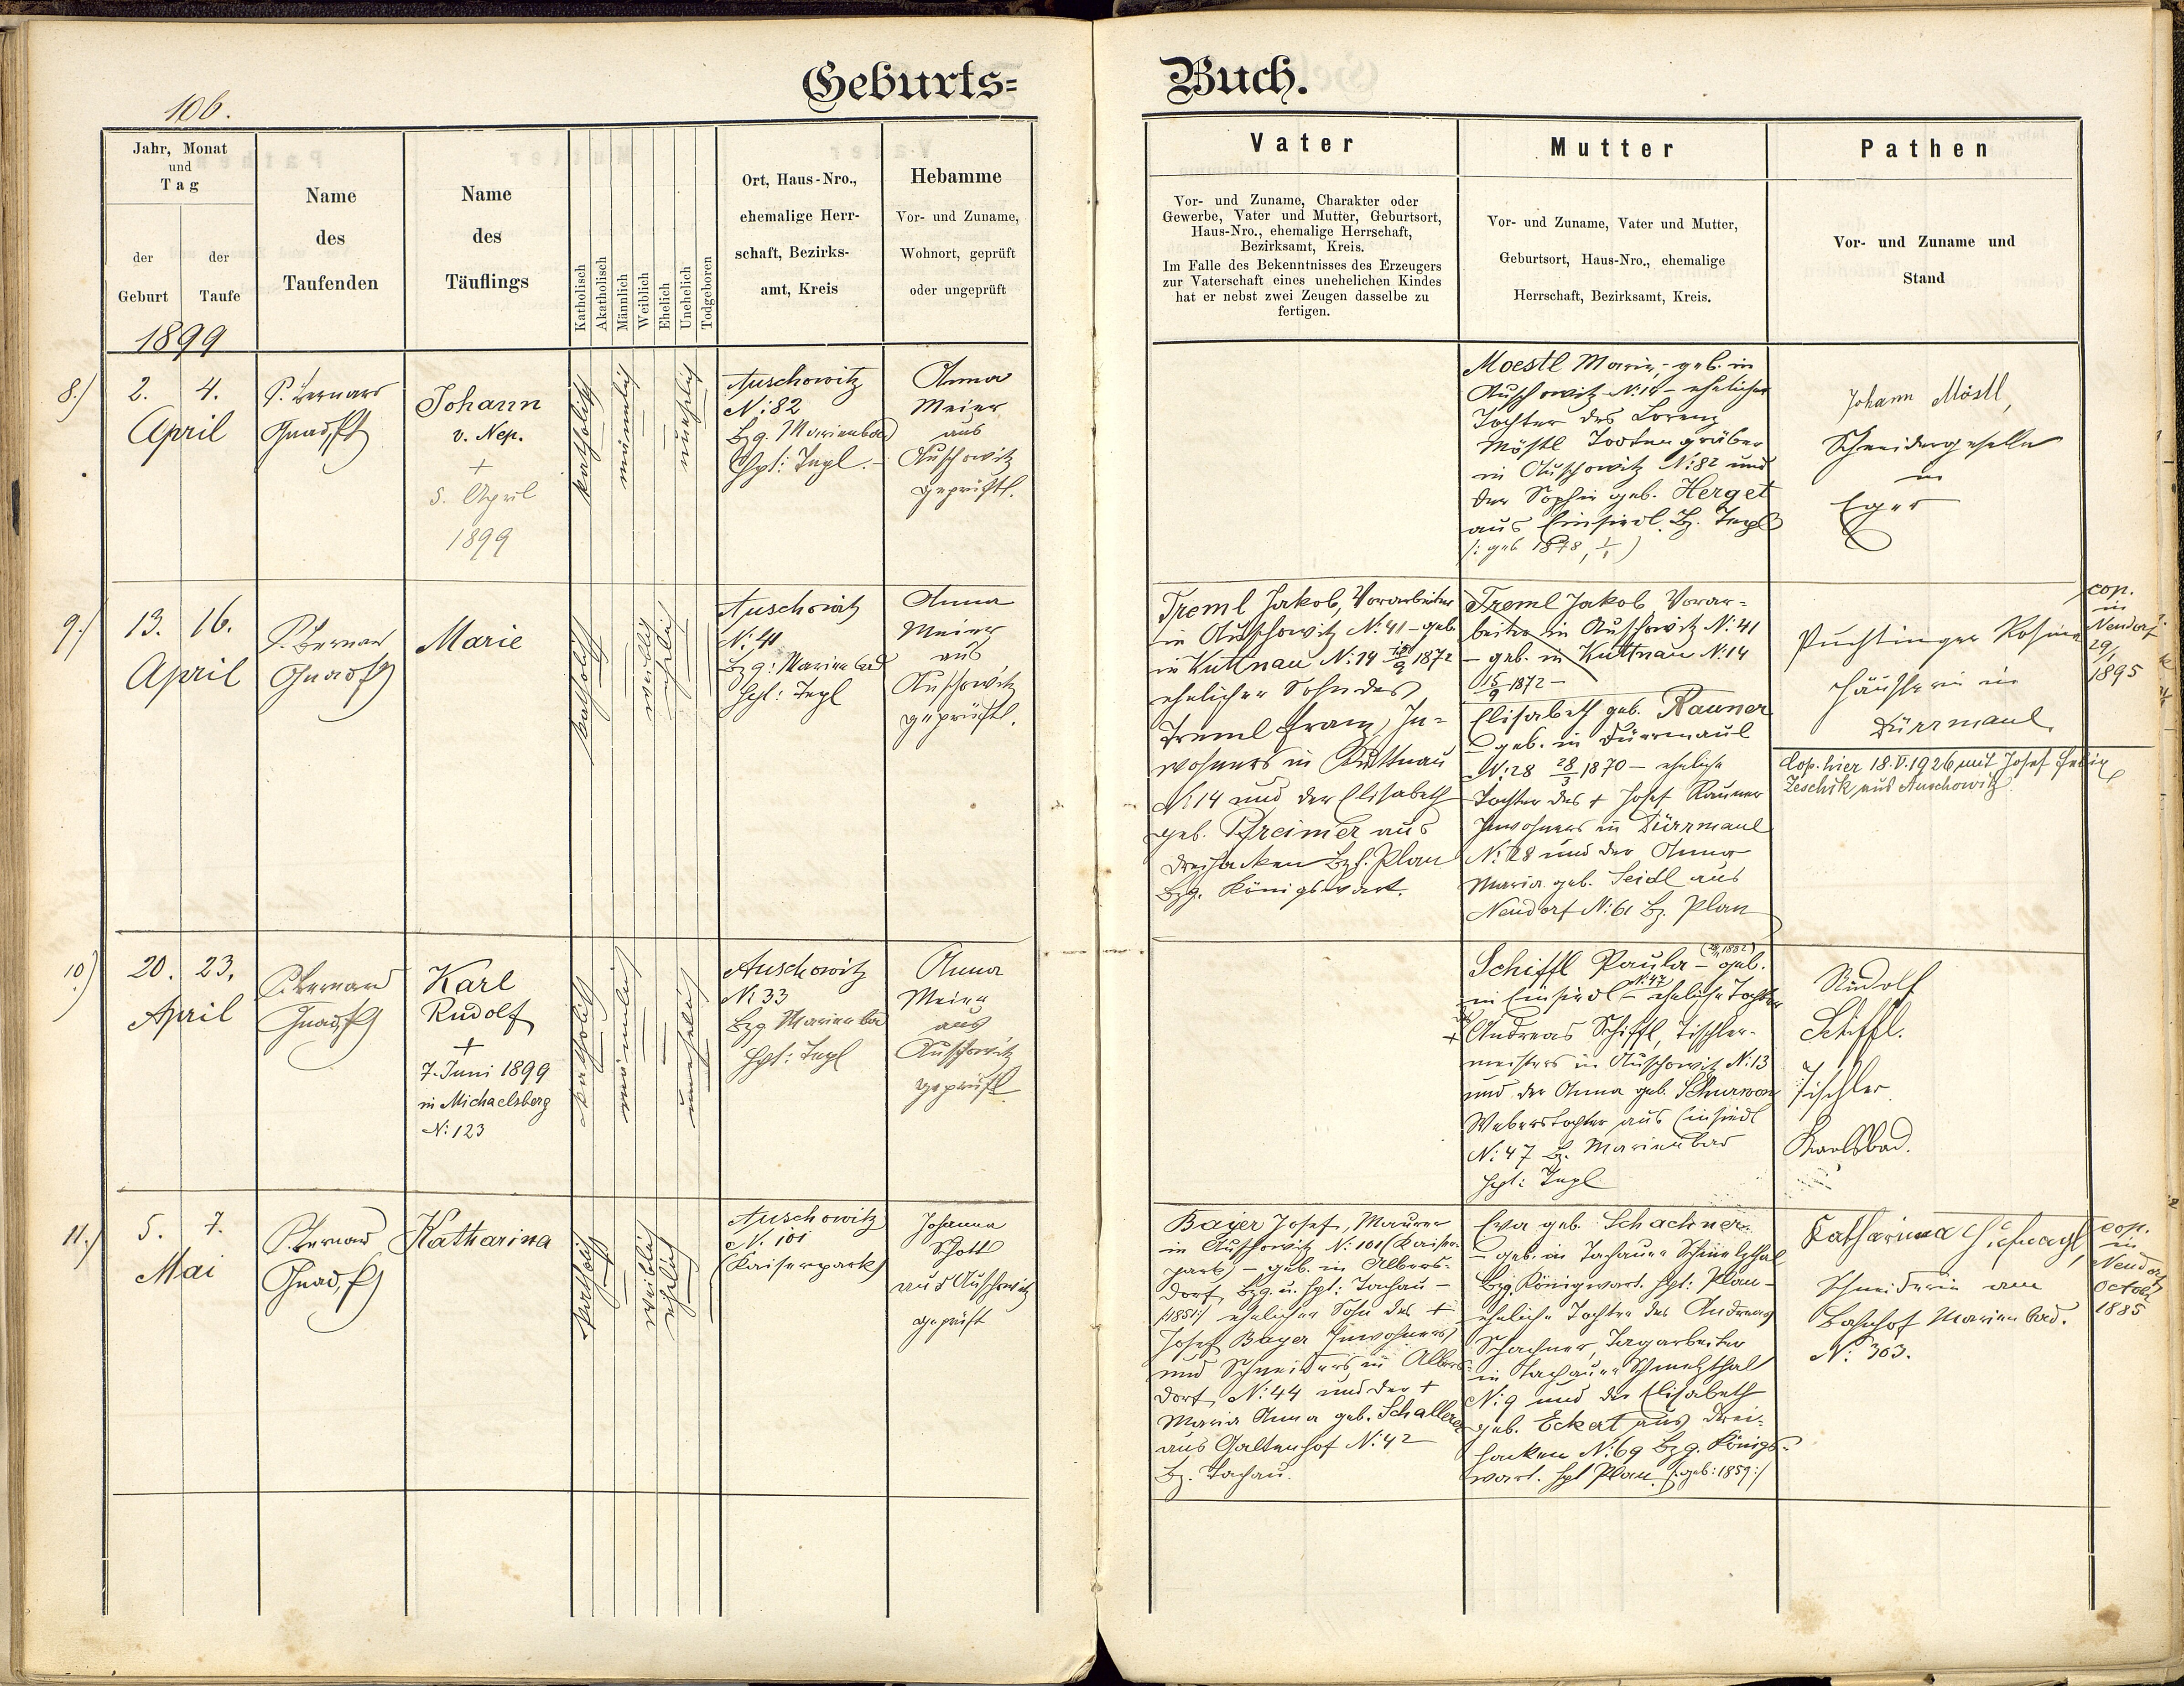 Geburts=
Buch.
106.
Jahr, Monat
und
Tag
der
Geburt
der
Taufe
Name
des
Taufenden
Name
des
Täuflings
Katholisch
Akatholisch
Männlich
Weiblich
Ehelich
Unehelich
Todgeboren
Ort, Haus-Nro.,
ehemalige Herr-
schaft, Bezirks-
amt, Kreis
Hebamme
Vor- und Zuname,
Wohnort, geprüft
oder ungeprüft
Vater
Vor- und Zuname, Charakter oder
Gewerbe, Vater und Mutter, Geburtsort,
Haus-Nro., ehemalige Herrschaft,
Bezirksamt, Kreis.
Im Falle des Bekenntnisses des Erzeugers
zur Vaterschaft eines unehelichen Kindes
hat er nebst zwei Zeugen dasselbe zu
fertigen.
Mutter
Vor- und Zuname, Vater und Mutter,
Geburtsort, Haus-Nro., ehemalige
Herrschaft, Bezirksamt, Kreis.
Pathen
Vor- und Zuname und
Stand
1899
8.)
2. 4.
April
P. Bernard
Johann
v. Nep.
+
5. April
1899
katholisch
männlich
unehelich
Auschowitz
N: 82
Bzg. Marienbad
Hpt: Tepl.
Anna
Meier
aus
Auschowitz
geprüft.
Moestl Marie, geb. in
Auschowitz N: 14 - eheliche
Tochter des Lorenz
Möstl Todtengräber
in Auschowitz N: 82 und
der Sophie geb. Herget
aus Einsiedl. Bz. Tepl
(: geb 1878, 1/1)
Johann Möstl,
Schneidergeselle
in
Eger
9.)
13. 16.
April
P. Bernard
Marie
katholisch
weiblich
ehelich
Auschowitz
N: 41
Bzg: Marienbad
Hpt: Tepl
Anna
Meier
aus
Auschowitz
geprüft.
Treml Jakob, Vorarbeiter
in Auschowitz N: 41 - geb.
in Kuttnau N: 14 15/9 1872
ehelicher Sohn des
Treml Franz, In=
wohners in Kuttnau
N: 14 und der Elisabeth
geb. Pfreimer aus
Dreihacken Bzh. Plan
Bzg. Königswart.
Treml Jakob Vorar=
beiter in Auschowitz N: 41
- geb. in Kuttnau N: 14
15/9 1872 -
Elisabeth geb. Rauner
- geb. in Dürrmaul
N: 28 28/3 1870 - eheliche
Tochter des + Josef Rauner
Inwohners in Dürrmaul
N: 28 und der Anna
Maria geb. Seidl aus
Neudorf N: 61 Bz. Plan
Puchtinger Rosina
Häuslerin in
Dürrmaul
cop.
in
Neudorf
29/1
1895
Cop. hier 18.V.1926 mit Josef
Zeschik aus Auschowitz
10)
20. 23.
April
P. Bernard
Karl
Rudolf
+
7. Juni 1899
in Michaelsberg
N: 123
katholisch
männlich
unehelich
Auschowitz
N: 33
Bzg Marienbad
Hpt: Tepl
Anna
Meier
aus
Auschowitz
geprüft
Schiffl Paula - geb.
in Einsiedl N: 47 - eheliche Tochter
des + Andreas Schiffl, Tischler-
meisters in Auschowitz N: 13
und der Anna geb.
Weberstochter aus Einsiedl
N: 47 Bz. Marienbad
Hpt: Tepl
Rudolf
Schiffl.
Tischler
Karlsbad.
11.)
5. 7.
Mai
P. Bernard
Katharina
katholisch
weiblich
ehelich
Auschowitz
N. 101
(Kaiserpark)
Johanna
Schott
aus Auschowitz
geprüft
Bayer Josef, Maurer
in Auschowitz N: 101 (Kaiser-
park) - geb. in Albers-
dorf, Bzg. u. Hpt: Tachau -
/:1851:/ ehelicher Sohn des +
Josef Bayer Inwohners
und Schneiders in Albers-
dorf, N: 44 und der +
Maria Anna geb. Schallerer
aus Galtenhof N: 42
Bz. Tachau.
Eva geb. Schachner
- geb. in Tachauer Schmelzthal
Bzg. Königswart. Hpt: Plan -
eheliche Tochter des Andreas
Schachner, Tagarbeiter
in Tachauer Schmelzthal
N: 9 und der Elisabeth
geb. Eckert aus Drei-
hacken N: 69 Bzg. Königs-
wart. Hpt Plan (: geb: 1859:/
Katharina
Schneiderin am
Bahnhof Marienbad.
N: 303.
cop.
in
Neudorf
October
1885